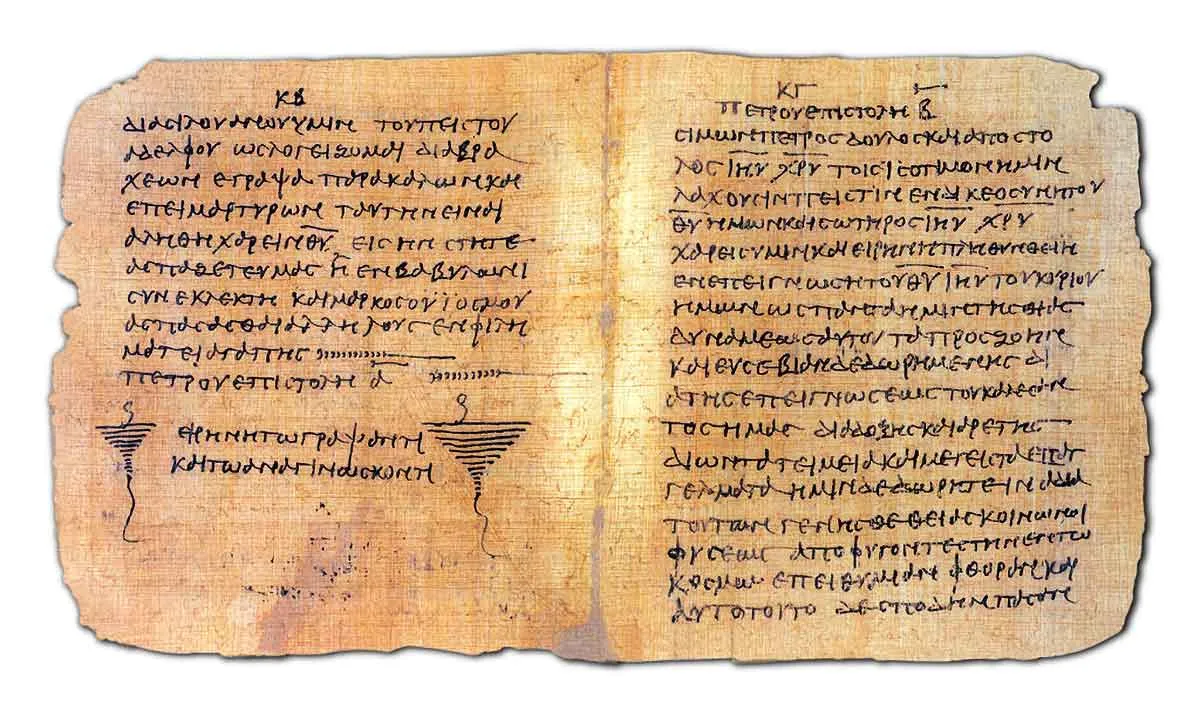 ΚΒ
ΔΙΑ ΣΙΛΟΥΑΝΟΥ ΥΜΙΝ ΤΟΥ ΠΕΙΣΤΟΥ
ΑΔΕΛΦΟΥ ΩΣ ΛΟΓΕΙΖΟΜΑΙ ΔΙΑ ΒΡΑ
ΧΕΩΝ ΕΓΡΑΨΑ ΠΑΡΑΚΑΛΩΝ ΚΑΙ
ΕΠΕΙΜΑΡΤΥΡΩΝ ΤΑΥΤΗΝ ΕΙΝΑΙ
ΑΛΗΘΗ ΧΑΡΕΙΝ Θ̅Υ̅ ΕΙΣ ΗΝ ΣΤΗΤΕ
ΑΣΠΑΖΕΤΕ ΥΜΑΣ Η ΕΝ ΒΑΒΥΛΩΝΙ
ΣΥΝΕΚΛΕΚΤΗ ΚΑΙ ΜΑΡΚΟΣ Ο ΥΙΟΣ ΜΟΥ
ΑΣΠΑΣΑΣΘΑΙ ΑΛΛΗΛΟΥΣ ΕΝ ΦΙΛΗ
ΜΑΤΕΙ ΑΓΑΠΗΣ
ΠΕΤΡΟΥ ΕΠΙΣΤΟΛΗ Α̅
ΕΙΡΗΝΗ ΤΩ ΓΡΑΨΑΝΤΙ
ΚΑΙ ΤΩ ΑΝΑΓΙΝΩΣΚΟΝΤΙ
ΚΓ
ΠΕΤΡΟΥ ΕΠΙΣΤΟΛΗ Β̅
ΣΙΜΩΝ ΠΕΤΡΟΣ ΔΟΥΛΟΣ ΚΑΙ ΑΠΟΣΤΟ
ΛΟΣ Ι̅Η̅Υ̅ Χ̅Ρ̅Υ̅ ΤΟΙΣ ΙΣΟΤΙΜΟΝ ΗΜΙΝ
ΛΑΧΟΥΣΙΝ ΠΕΙΣΤΙΝ ΕΝ ΔΙΚΕΟΣΥΝΗ ΤΟΥ
Θ̅Υ̅ ΗΜΩΝ ΚΑΙ ΣΩΤΗΡΟΣ Ι̅Η̅Υ̅ Χ̅Ρ̅Υ̅
ΧΑΡΕΙΣ ΥΜΙΝ ΚΑΙ ΕΙΡΗΝΗ ΠΛΗΘΥΝΘΕΙΗ
ΕΝ ΕΠΕΙΓΝΩΣΗ ΤΟΥ Θ̅Υ̅ Ι̅Η̅Υ̅ ΤΟΥ ΚΥΡΙΟΥ
ΗΜΩΝ ΩΣ ΠΑΝΤΑ ΗΜΙΝ ΤΗΣ ΘΙΑΣ
ΔΥΝΑΜΕΩΣ ΑΥΤΟΥ ΤΑ ΠΡΟΣ ΖΟΗΝ
ΚΑΙ ΕΥΣΕΒΙΑΝ ΔΕΔΩΡΗΜΕΝΗΣ ΔΙ
Α ΤΗΣ ΕΠΕΙΓΝΩΣΕΩΣ ΤΟΥ ΚΑΛΕΣΑΝ
ΤΟΣ ΗΜΑΣ ΔΙΑ ΔΟΞΗΣ ΚΑΙ ΑΡΕΤΗΣ
ΔΙ ΩΝ ΤΑ ΤΕΙΜΕΙΑ ΚΑΙ ΜΕΓΕΙΣΤΑ ΕΠΑΓ
ΓΕΛΜΑΤΑ ΗΜΙΝ ΔΕΔΩΡΗΤΕ ΙΝΑ ΔΙΑ
ΤΟΥΤΩΝ ΓΕΝΗΣΘΕ ΘΕΙΑΣ ΚΟΙΝΩΝΟΙ
ΦΥΣΕΩΣ ΑΠΟΦΥΓΟΝΤΕΣ ΤΗΝ ΕΝ ΤΩ
ΚΟΣΜΩ ΕΠΕΙΘΥΜΙΑΝ ΦΘΟΡΑΝ ΚΑΙ
ΑΥΤΟ ΤΟΥΤΟ ΔΕ ΣΠΟΔΗΝ ΠΑΣΑΝ